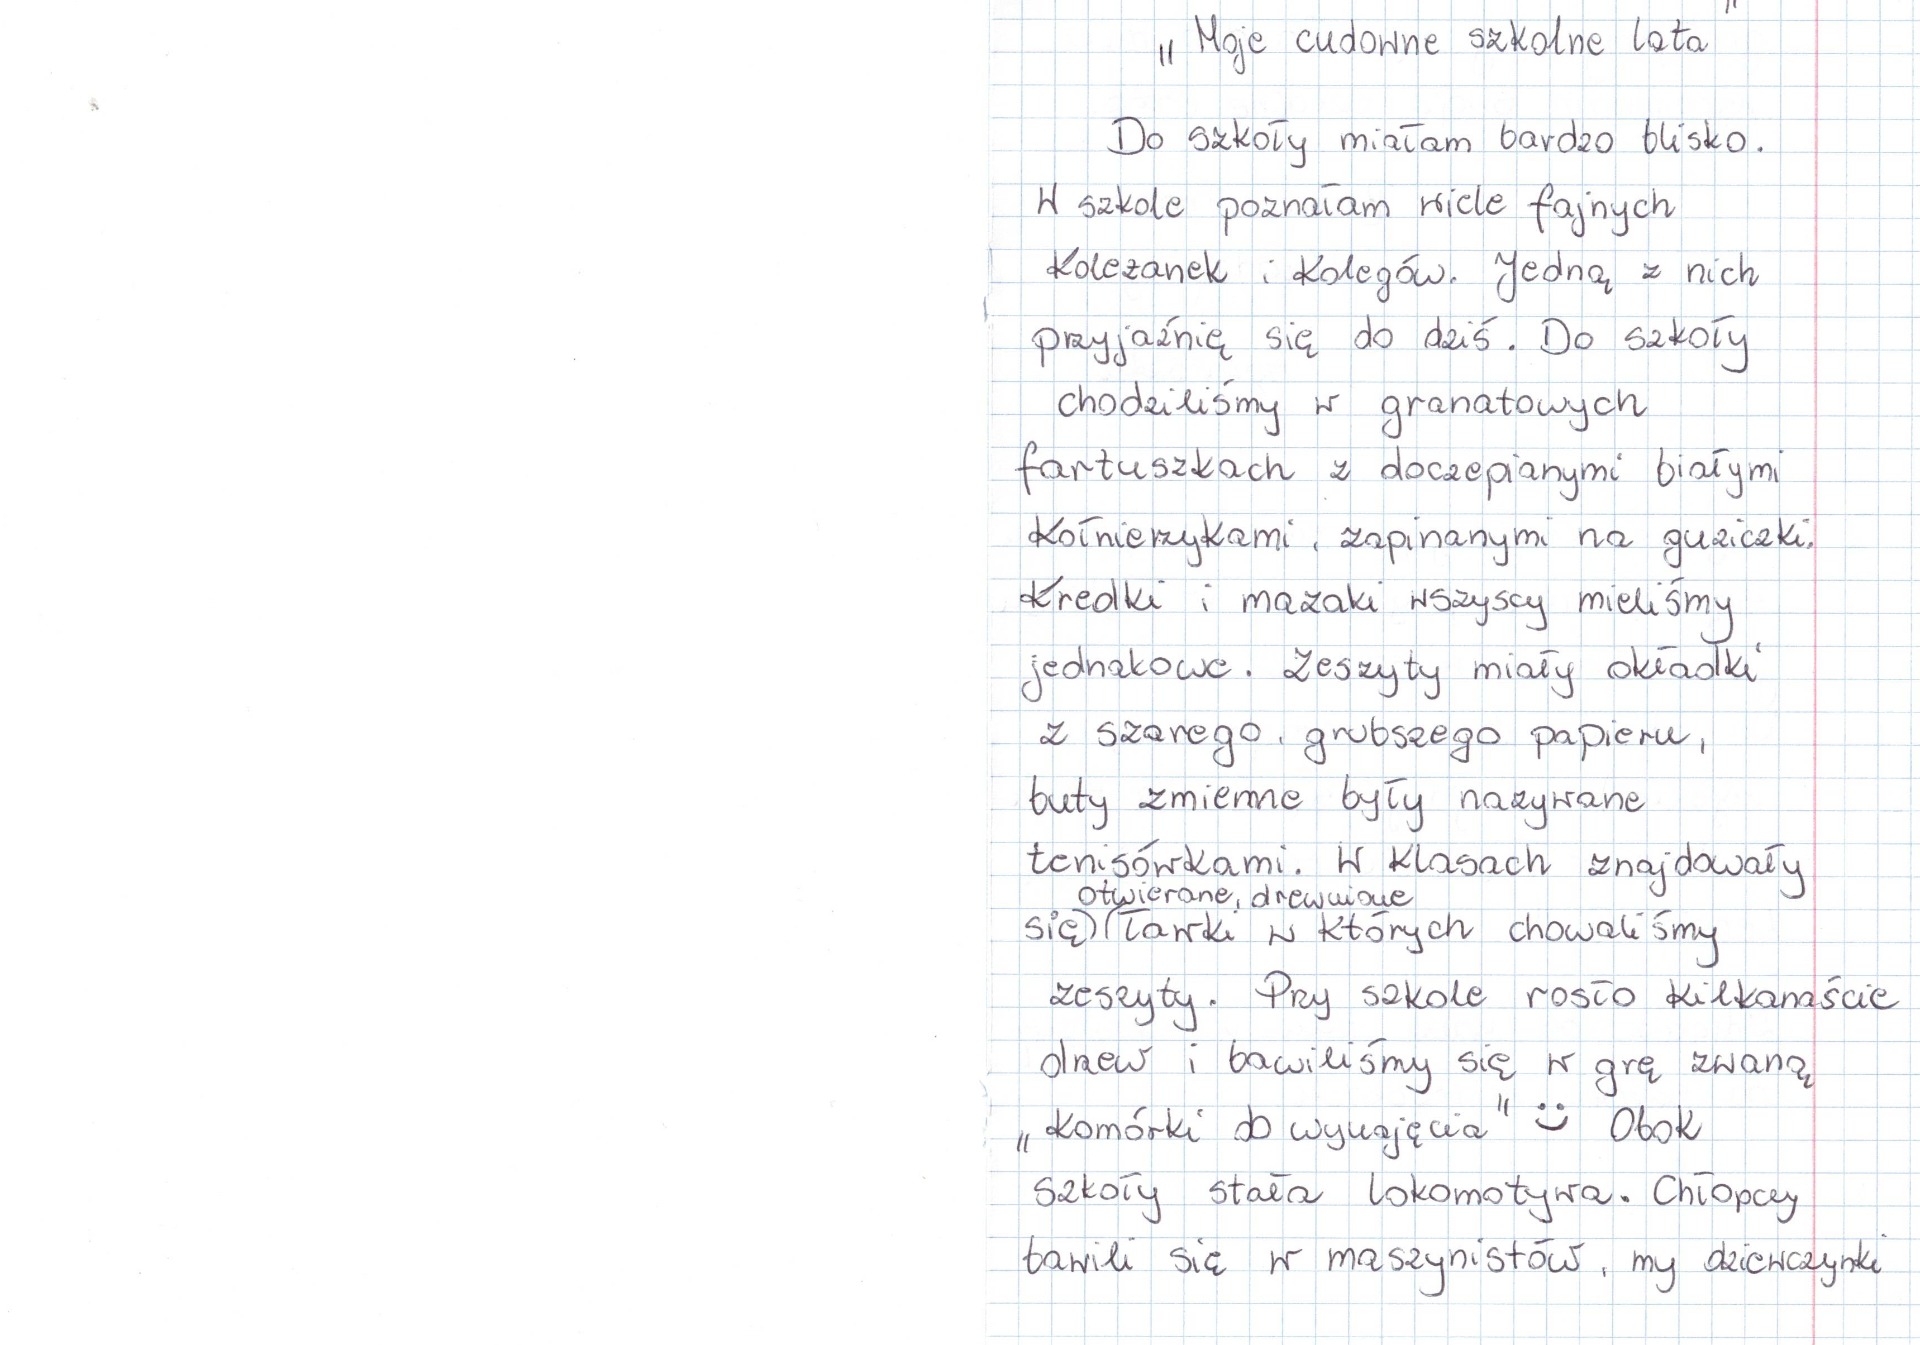 „Moje cudowne szkolne lata"
Do szkoły miałam bardzo blisko.
W szkole poznałam wiele fajnych
koleżanek i kolegów. Jedną z nich
przyjaźnię się do dziś. Do szkoły
chodziliśmy w granatowych
fartuszkach z doczepianymi białymi
kołnierzykami, zapinanymi na guziczki.
Kredki i mazaki wszyscy mieliśmy
jednakowe. Zeszyty miały okładki
z szarego, grubszego papieru,
buty zmienne były nazywane
tenisówkami. W klasach znajdowały
otwierane, drewniane
się) (ławki w których chowaliśmy
zeszyty. Przy szkole rosło kilkanaście
drzew i bawiliśmy się w grę zwaną
„komórki do wynajęcia" :) Obok
szkoły stała lokomotywa. Chłopcy
bawili się w maszynistów, my dziewczynki